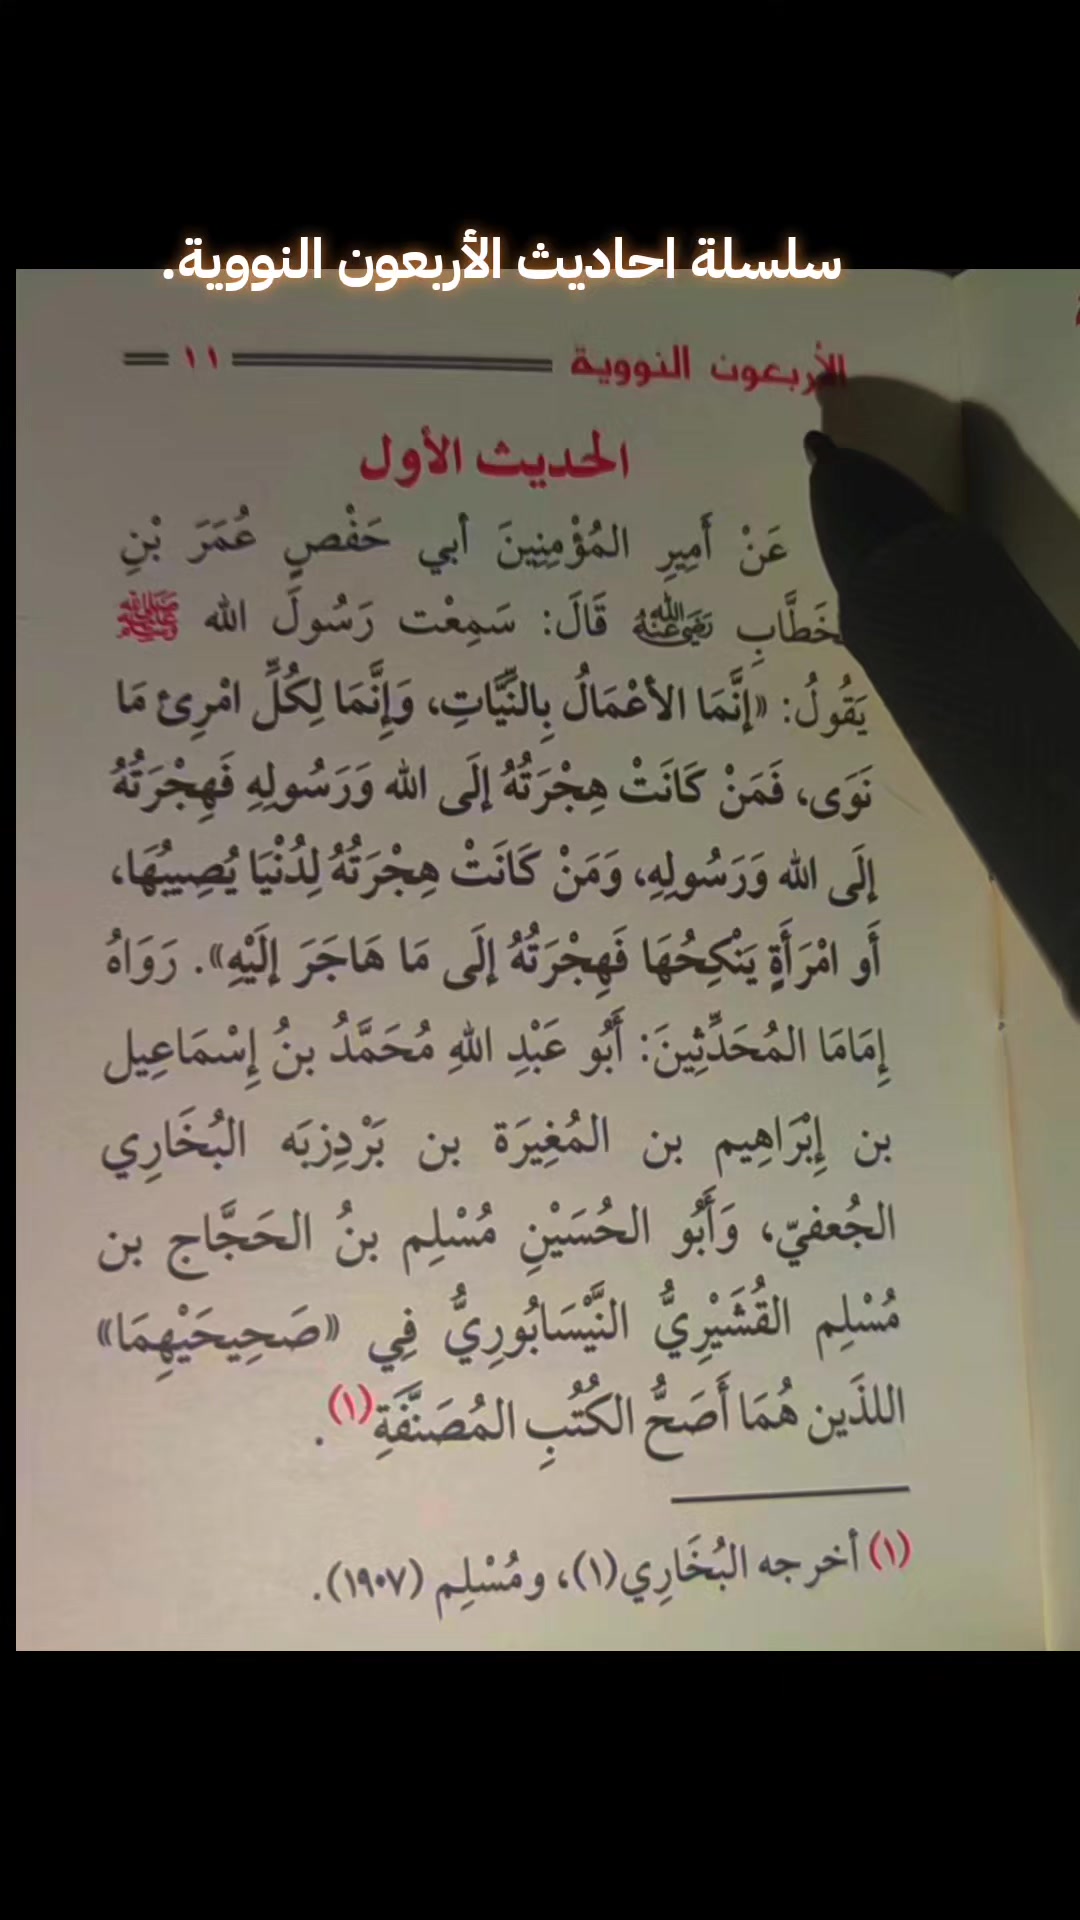 سلسلة احاديث الأربعون النووية.
الأربعون النووية ١١
الحديث الأول
عَنْ أَمِيرِ المُؤْمِنِينَ أبي حَفْصٍ عُمَرَ بْنِ
الخَطَّابِ رَضِيَ اللهُ عَنْهُ قَالَ: سَمِعْت رَسُولَ الله ﷺ
يَقُولُ: «إِنَّمَا الأَعْمَالُ بِالنِّيَّاتِ، وَإِنَّمَا لِكُلِّ امْرِئ مَا
نَوَى، فَمَنْ كَانَتْ هِجْرَتُهُ إلَى الله وَرَسُولِهِ فَهِجْرَتُهُ
إلَى الله وَرَسُولِهِ، وَمَنْ كَانَتْ هِجْرَتُهُ لِدُنْيَا يُصِيبُهَا،
أَو امْرَأَةٍ يَنْكِحُهَا فَهِجْرَتُهُ إلَى مَا هَاجَرَ إلَيْهِ». رَوَاهُ
إِمَامَا المُحَدِّثِينَ: أَبُو عَبْدِ اللهِ مُحَمَّدُ بنُ إِسْمَاعِيل
بن إِبْرَاهِيم بن المُغِيرَة بن بَرْدِزبَه البُخَارِي
الجُعفيّ، وَأَبُو الحُسَيْنِ مُسْلِم بنُ الحَجَّاج بن
مُسْلِم القُشَيْرِيُّ النَّيْسَابُورِيُّ فِي «صَحِيحَيْهِمَا»
اللذَين هُمَا أَصَحُّ الكُتُبِ المُصَنَّفَةِ(١).
(١) أخرجه البُخَارِي(١)، ومُسْلِم (١٩٠٧).